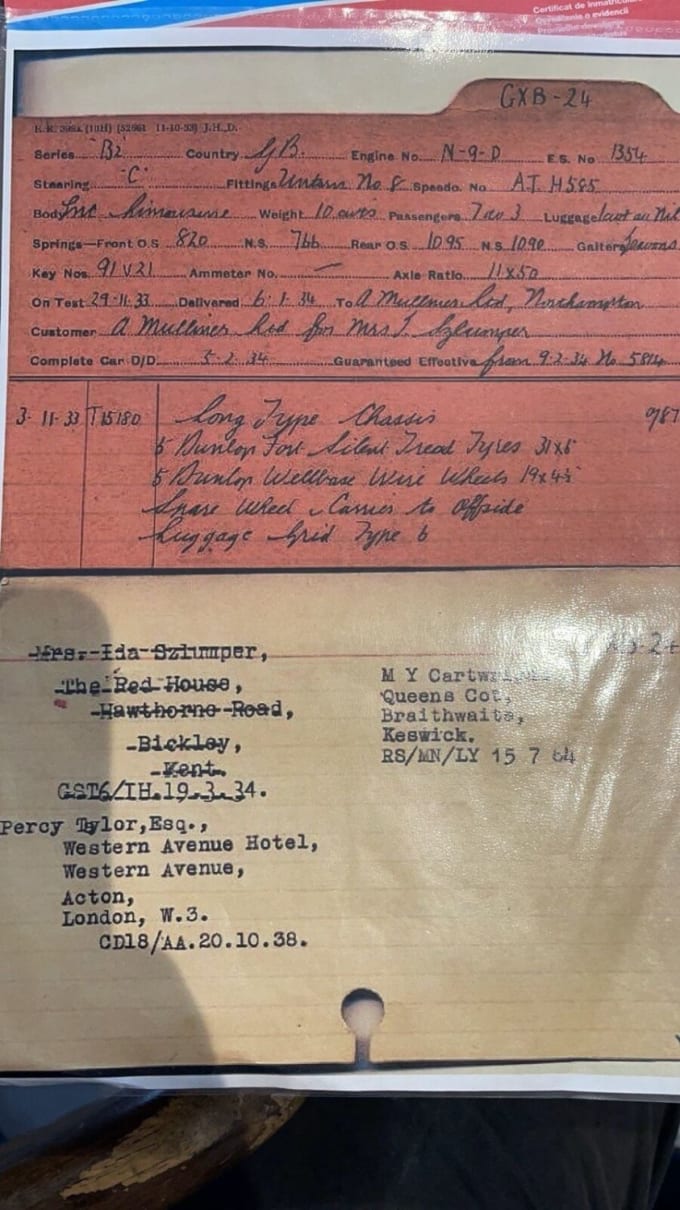 Certificat de înmatricul
GXB-24
R.R. 399A (10H) (52661 11-10-33) J.H., D.
Series B2 Country G.B. Engine No. N-9-D E.S. No 1354
Steering "C" Fittings No 8 Speedo. No A.T. H585
Body Enc Limousine Weight 10 cwts Passengers 7 Luggage
Springs—Front O.S 820 N.S. 766 Rear O.S. 1095 N.S. 1090 Gaiters
Key Nos. 91 V21 Ammeter No. — Axle Ratio 11x50
On Test 29-11-33 Delivered 6.1.34 To A Mulliner Ltd, Northampton
Customer A Mulliner Ltd for Mrs I Szlumper
Complete Car D/D. 5-2-34 Guaranteed Effective from 9-2-34 No
3-11-33 T15180 Long Type Chassis 987
5 Dunlop Fort Silent Tread Tyres 31x6
5 Dunlop Wellbase Wire Wheels 19x4½
Spare Wheel Carrier to Offside
Luggage Grid Type 6
Mrs. Ida Szlumper,
The Red House,
Hawthorne Road,
Bickley,
Kent.
GST6/IH.19.3.34.
Percy Tylor, Esq.,
Western Avenue Hotel,
Western Avenue,
Acton,
London, W.3.
CD18/AA.20.10.38.
M Y
Queens Cot,
Braithwaite,
Keswick.
RS/MN/LY 15 7 64